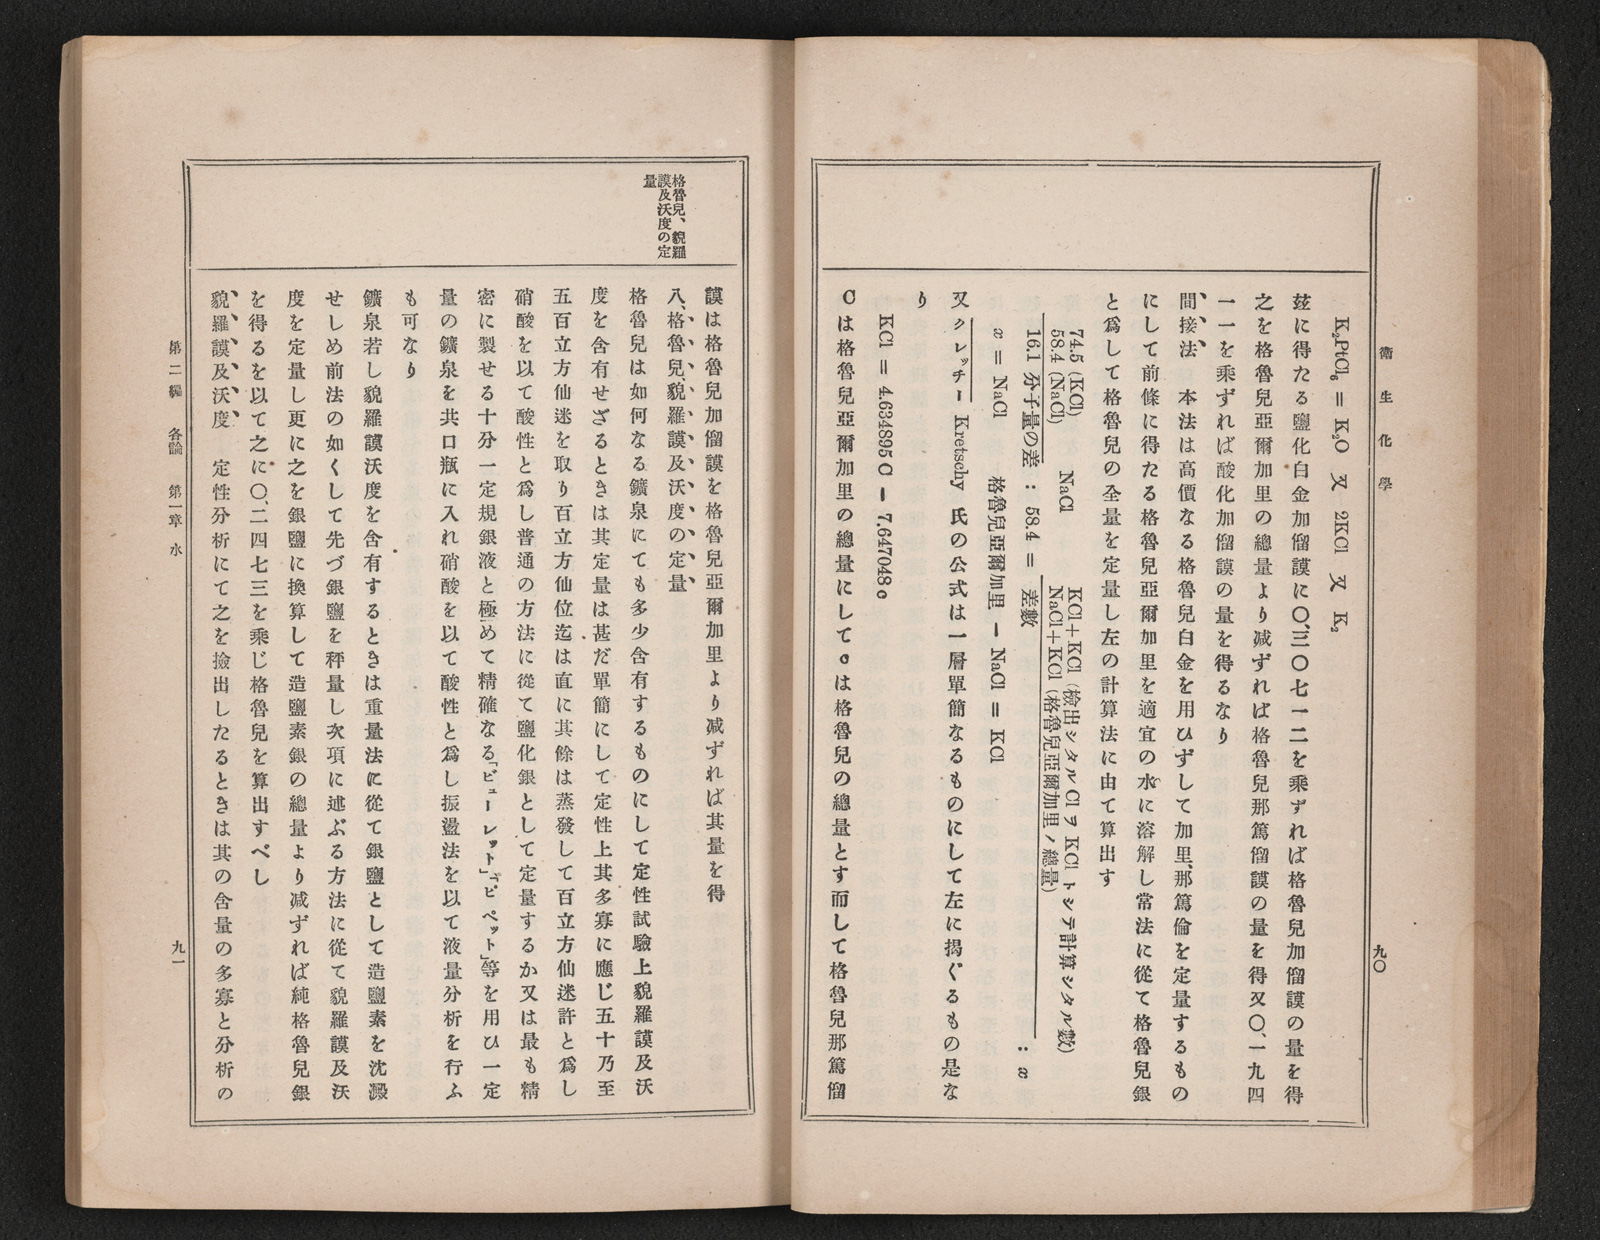 衛生化學
九〇
K₂PtCl₆ = K₂O 又 2KCl 又 K₂
玆に得たる鹽化白金加㑹謨に〇、三〇七一二を乘ずれば格魯兒加㑹謨の量を得
之を格魯兒亞爾加里の總量より減ずれば格魯兒那篤㑹謨の量を得又〇、一九四
一一を乘ずれば酸化加㑹謨の量を得るなり
間接法 本法は高價なる格魯兒白金を用ひずして加里、那篤倫を定量するもの
にして前條に得たる格魯兒亞爾加里を適宜の水に溶解し常法に從て格魯兒銀
と爲して格魯兒の全量を定量し左の計算法に由て算出す
74.5 (KCl) NaCl KCl+KCl (檢出シタル Cl ヲ KCl トシテ計算シタル數)
58.4 (NaCl) NaCl+KCl (格魯兒亞爾加里ノ總量)
16.1 分子量の差 : 58.4 = 差數 : x
x = NaCl 格魯兒亞爾加里 − NaCl = KCl
又クレッチー Kretschy 氏の公式は一層單簡なるものにして左に揭ぐるもの是な
り
KCl = 4.634895 C − 7.647048 c
Cは格魯兒亞爾加里の總量にしてcは格魯兒の總量とす而して格魯兒那篤㑹
格魯兒、貌羅
謨及沃度の定
量
謨は格魯兒加㑹謨を格魯兒亞爾加里より減ずれば其量を得
八、格魯兒貌羅謨及沃度の定量
格魯兒は如何なる鑛泉にても多少含有するものにして定性試驗上貌羅謨及沃
度を含有せざるときは其定量は甚だ單簡にして定性上其多寡に應じ五十乃至
五百立方仙迷を取り百立方仙位迄は直に其餘は蒸發して百立方仙迷許と爲し
硝酸を以て酸性と爲し普通の方法に從て鹽化銀として定量するか又は最も精
密に製せる十分一定規銀液と極めて精確なる「ビューレット」「ピペット」等を用ひ一定
量の鑛泉を共口瓶に入れ硝酸を以て酸性と爲し振盪法を以て液量分析を行ふ
も可なり
鑛泉若し貌羅謨沃度を含有するときは重量法に從て銀鹽として造鹽素を沈澱
せしめ前法の如くして先づ銀鹽を秤量し次項に述ぶる方法に從て貌羅謨及沃
度を定量し更に之を銀鹽に換算して造鹽素銀の總量より減ずれば純格魯兒銀
を得るを以て之に〇、二四七三を乘じ格魯兒を算出すべし
貌羅謨及沃度 定性分析にて之を撿出したるときは其の含量の多寡と分析の
第二編 各論 第一章 水
九一